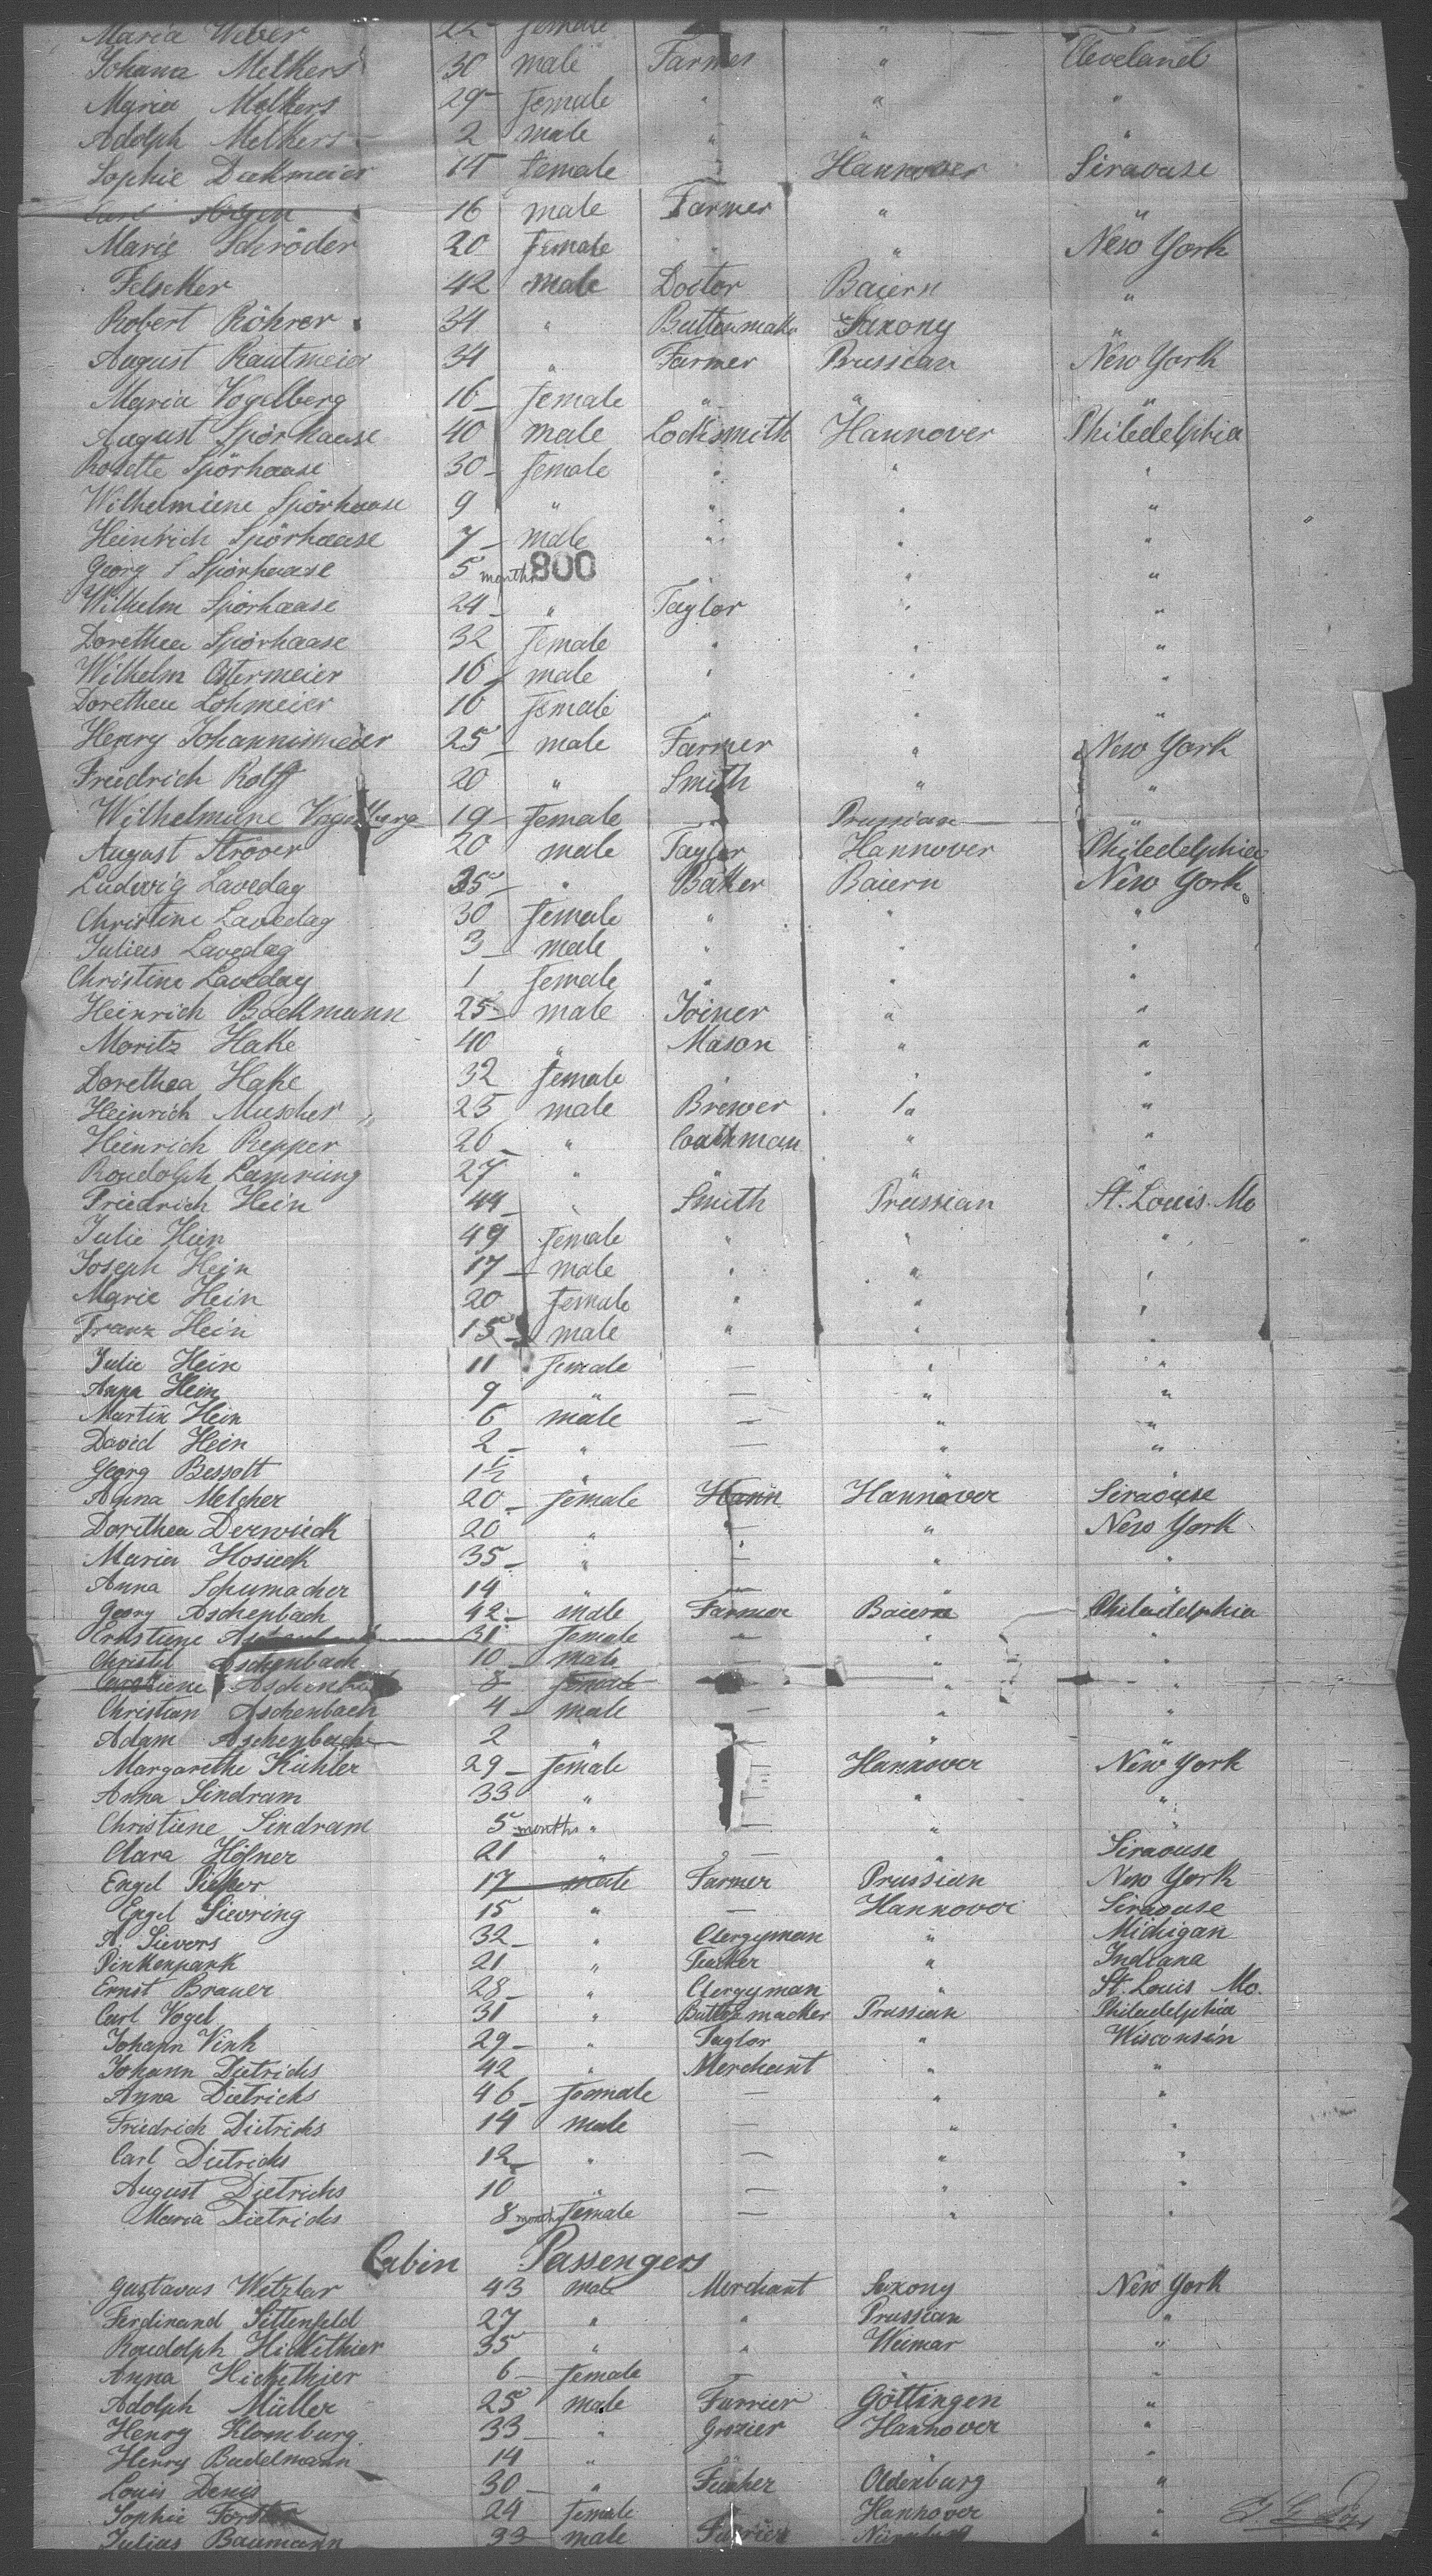 Maria Weber 22 female "
Johana Melkers 30 male Farmer " Cleveland
Maria Melkers 29 female " " "
Adolph Melkers 2 male " " "
Sophie Dukmeier 15 female Hannover Siraouse
16 male Farmer " "
Marie Schröder 20 female " " New York
Felscker 42 male Doctor Baiern "
Robert Röhrer 34 " Buttonmak Saxony "
August Rautmeier 34 " Farmer Prussian New York
Maria Vogelberg 16 female " " "
August Spörhaase 40 male Locksmith Hannover Philedelphia
Rosette Spörhaase 30 female " " "
Wilhelmiene Spörhaase 9 " " " "
Heinrich Spörhaase 7 male " " "
Georg Spörhaase 5 months 800 " "
Wilhelm Spörhaase 24 " Taylor " "
Dorethea Spörhaase 32 female " " "
Wilhelm Ostermeier 16 male " " "
Dorethea Lohmeier 16 female " " "
Henry Johannismeier 25 male Farmer " New York
Friedrich Rolff 20 " Smith " "
Wilhelmine 19 female Prussian "
August Ströver 20 male Taylor Hannover Philedelphia
Ludwig Lavedag 35 " Baker Baiern New York
Christine Lavedag 30 female " " "
Julius Lavedag 3 male " " "
Christine Lavedag 1 female " " "
Heinrich Backmann 25 male Joiner " "
Moritz Hake 40 " Mason " "
Dorethea Hake 32 female " " "
Heinrich Muscher 25 male Brewer " "
Heinrich Repper 26 " Coathman " "
Roudolph Lampring 27 " " " "
Friedrich Hein 44 " Smith Prussian St. Louis. Mo
Julie Hein 49 female " " "
Joseph Hein 17 male " " "
Marie Hein 20 female " " "
Franz Hein 15 male " " "
Julie Hein 11 female — " "
Anna Hein 9 " — " "
Martin Hein 6 male — " "
David Hein 2 " — " "
Georg Bessott 1½ "
Anna Melcher 20 female Hann Hannover Siraouse
Dorethea Derwieck 20 " " " New York
Maria Hosieck 35 " — " "
Anna Schumacher 14 " —
Georg Aschenbach 42 male Farmer Baiern Philadelphia
Ernstiene 31 female " " "
Christel Aschenbach 10 male — " "
Caroliene Aschenbach 8 female " "
Christian Aschenbach 4 male — " "
Adam Aschenbach 2 " " "
Margarethe Kühler 29 female — Hannover New York
Anna Sindram 33 " — " "
Christiene Sindram 5 months " — " "
Clara Höfner 21 " — " Siraouse
Engel Pieper 17 male Farmer Prussian New York
Engel Sievring 15 " — Hannover Siraouse
A. Sievers 32 " Clergyman " Michigan
Pinkenpank 21 " Teacher " Indiana
Ernst Brauer 28 " Clergyman " St. Louis Mo.
Carl Vogel 31 " Buttonmacker Prussian Philadelphia
Johann Vink 29 " Taylor " Wisconsin
Johann Dietrichs 42 " Merchant " "
Anna Dietrichs 46 female — " "
Friedrich Dietrichs 14 male — " "
Carl Dietrichs 12 " — " "
August Dietrichs 10 " — " "
Maria Dietrichs 8 months female — " "
Cabin Passengers
Gustavus Wetzlar 43 male Merchant Saxony New York
Ferdinand Sittenfeld 27 " " Prussian "
Roudolph Hickethier 35 " " Weimar "
Anna Hickethier 6 female "
Adolph Müller 25 male Furrier Göttingen "
Henry Klomburg 33 " Grozier Hannover "
Henry Budelmann 14 " " "
Louis Denis 30 " Oldenburg "
Sophie Forster 24 female Hannover "
Julius Baumann 33 male Furrier "